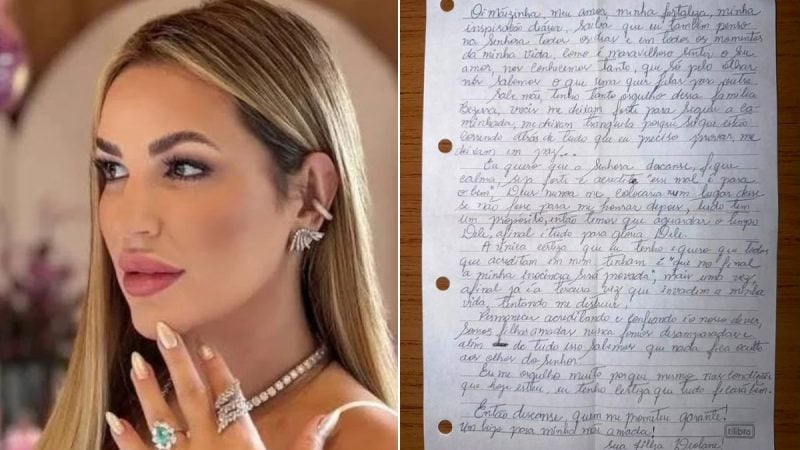 Oi Mãizinha, meu amor, minha fortaleza, minha
inspiração diária, saiba que eu também penso
na Senhora todos os dias e em todos os momentos
da minha vida, como é maravilhoso sentir o seu
amor, nos conhecemos tanto, que só pelo olhar
nós sabemos o que uma quer falar para outra.
Sabe mãe, tenho tanto orgulho dessa família
Bezerra, vocês me deixam forte para seguir a ca-
minhada, me deixam tranquila porque sei que estão
correndo atrás de tudo que eu preciso provar, me
deixam em paz...
Eu quero que a Senhora descanse, fique
calma, seja forte e acredite "esse mal é para
o bem". Deus nunca me colocaria num lugar desse
se não fosse para me honrar depois, tudo tem
um propósito, então temos que aguardar o tempo
Dele, afinal é tudo para glória Dele.
A única certeza que eu tenho e quero que todos
que acreditam em mim tenham é "que no final
a minha inocência será provada", mais uma vez,
afinal já é a terceira vez que invadem a minha
vida, tentando me destruir.
Permanecer acreditando e confiando é o nosso dever,
somos filhas amadas nunca fomos desamparadas e
além de tudo isso sabemos que nada fica oculto
aos olhos do senhor.
Eu me orgulho muito porque mesmo nas condições
que hoje estou, eu tenho certeza que tudo ficará bem.
Então descanse, quem me prometeu garante!
Um beijo para minha mãe amada!
tilibra
sua filha Deolane!